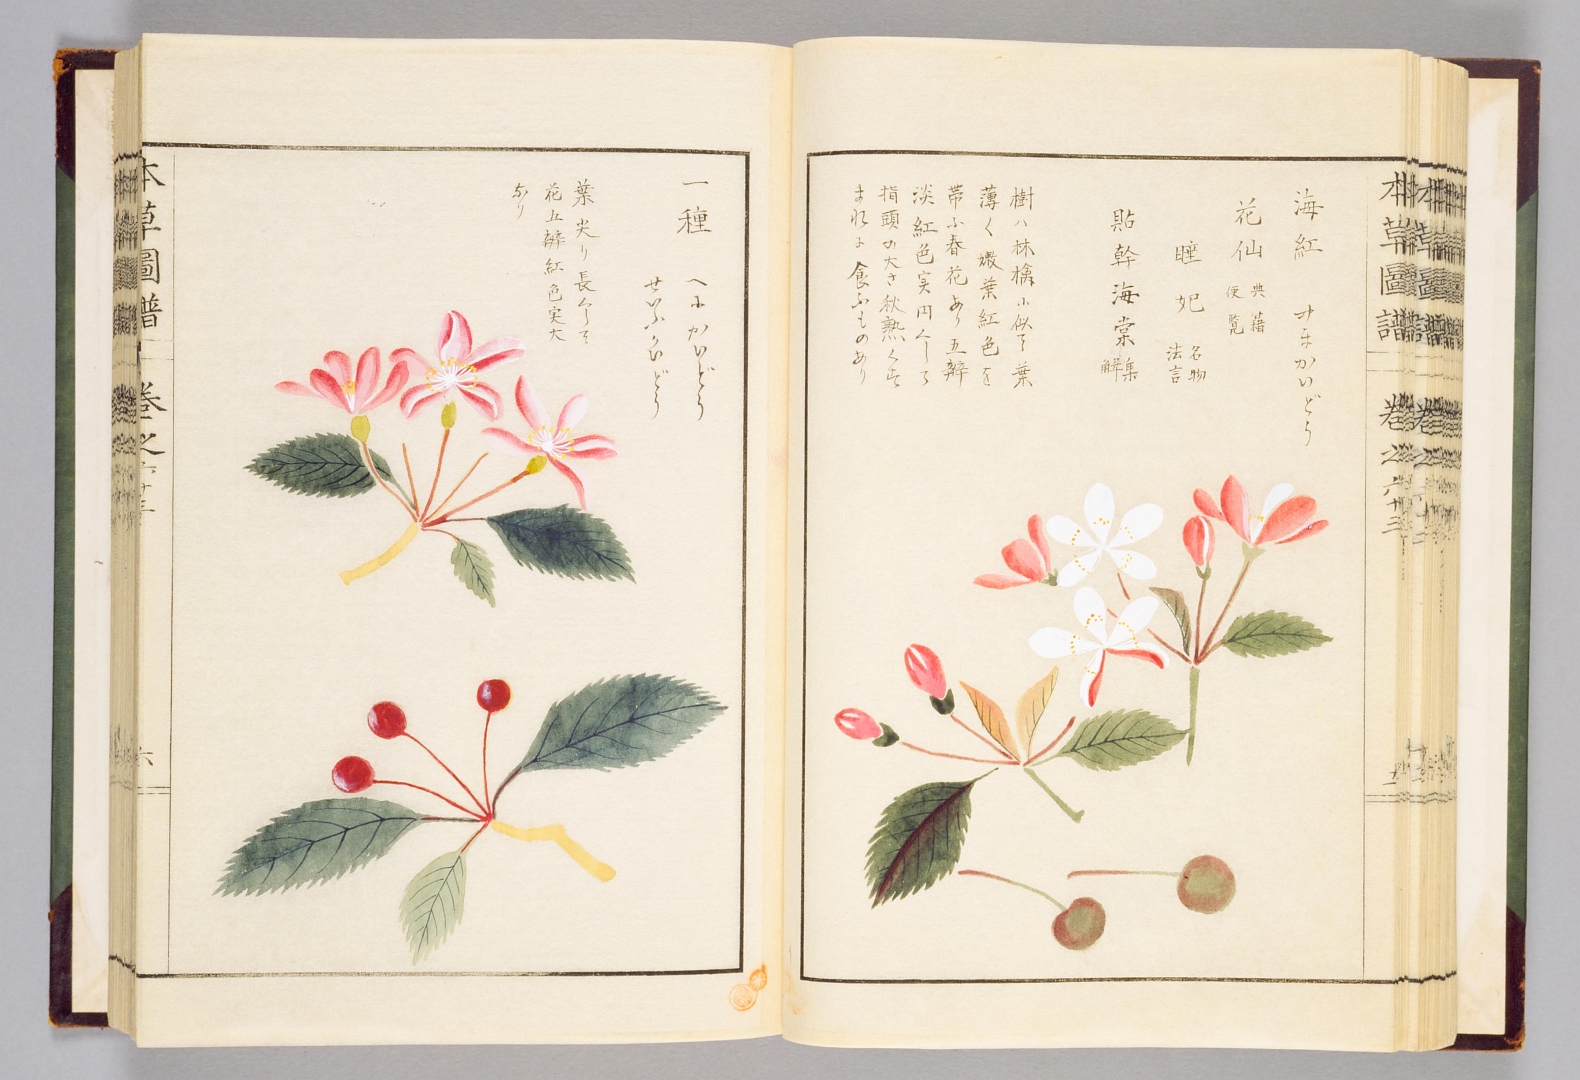 本草圖譜 巻之六十三
海紅 みまかいどう
花仙 典籍便覧
睡妃 名物法言
貼幹海棠 集解
樹ハ林檎に似て葉
薄く嫩葉紅色を
帯ふ春花あり五辨
淡紅色実円くして
指頭の大さ秋熟くす
まれに食ふものあり
一種 べにかいどう
せいしかいどう
葉尖り長くして
花五辨紅色実大
なり
本草圖譜 巻之六十三
六